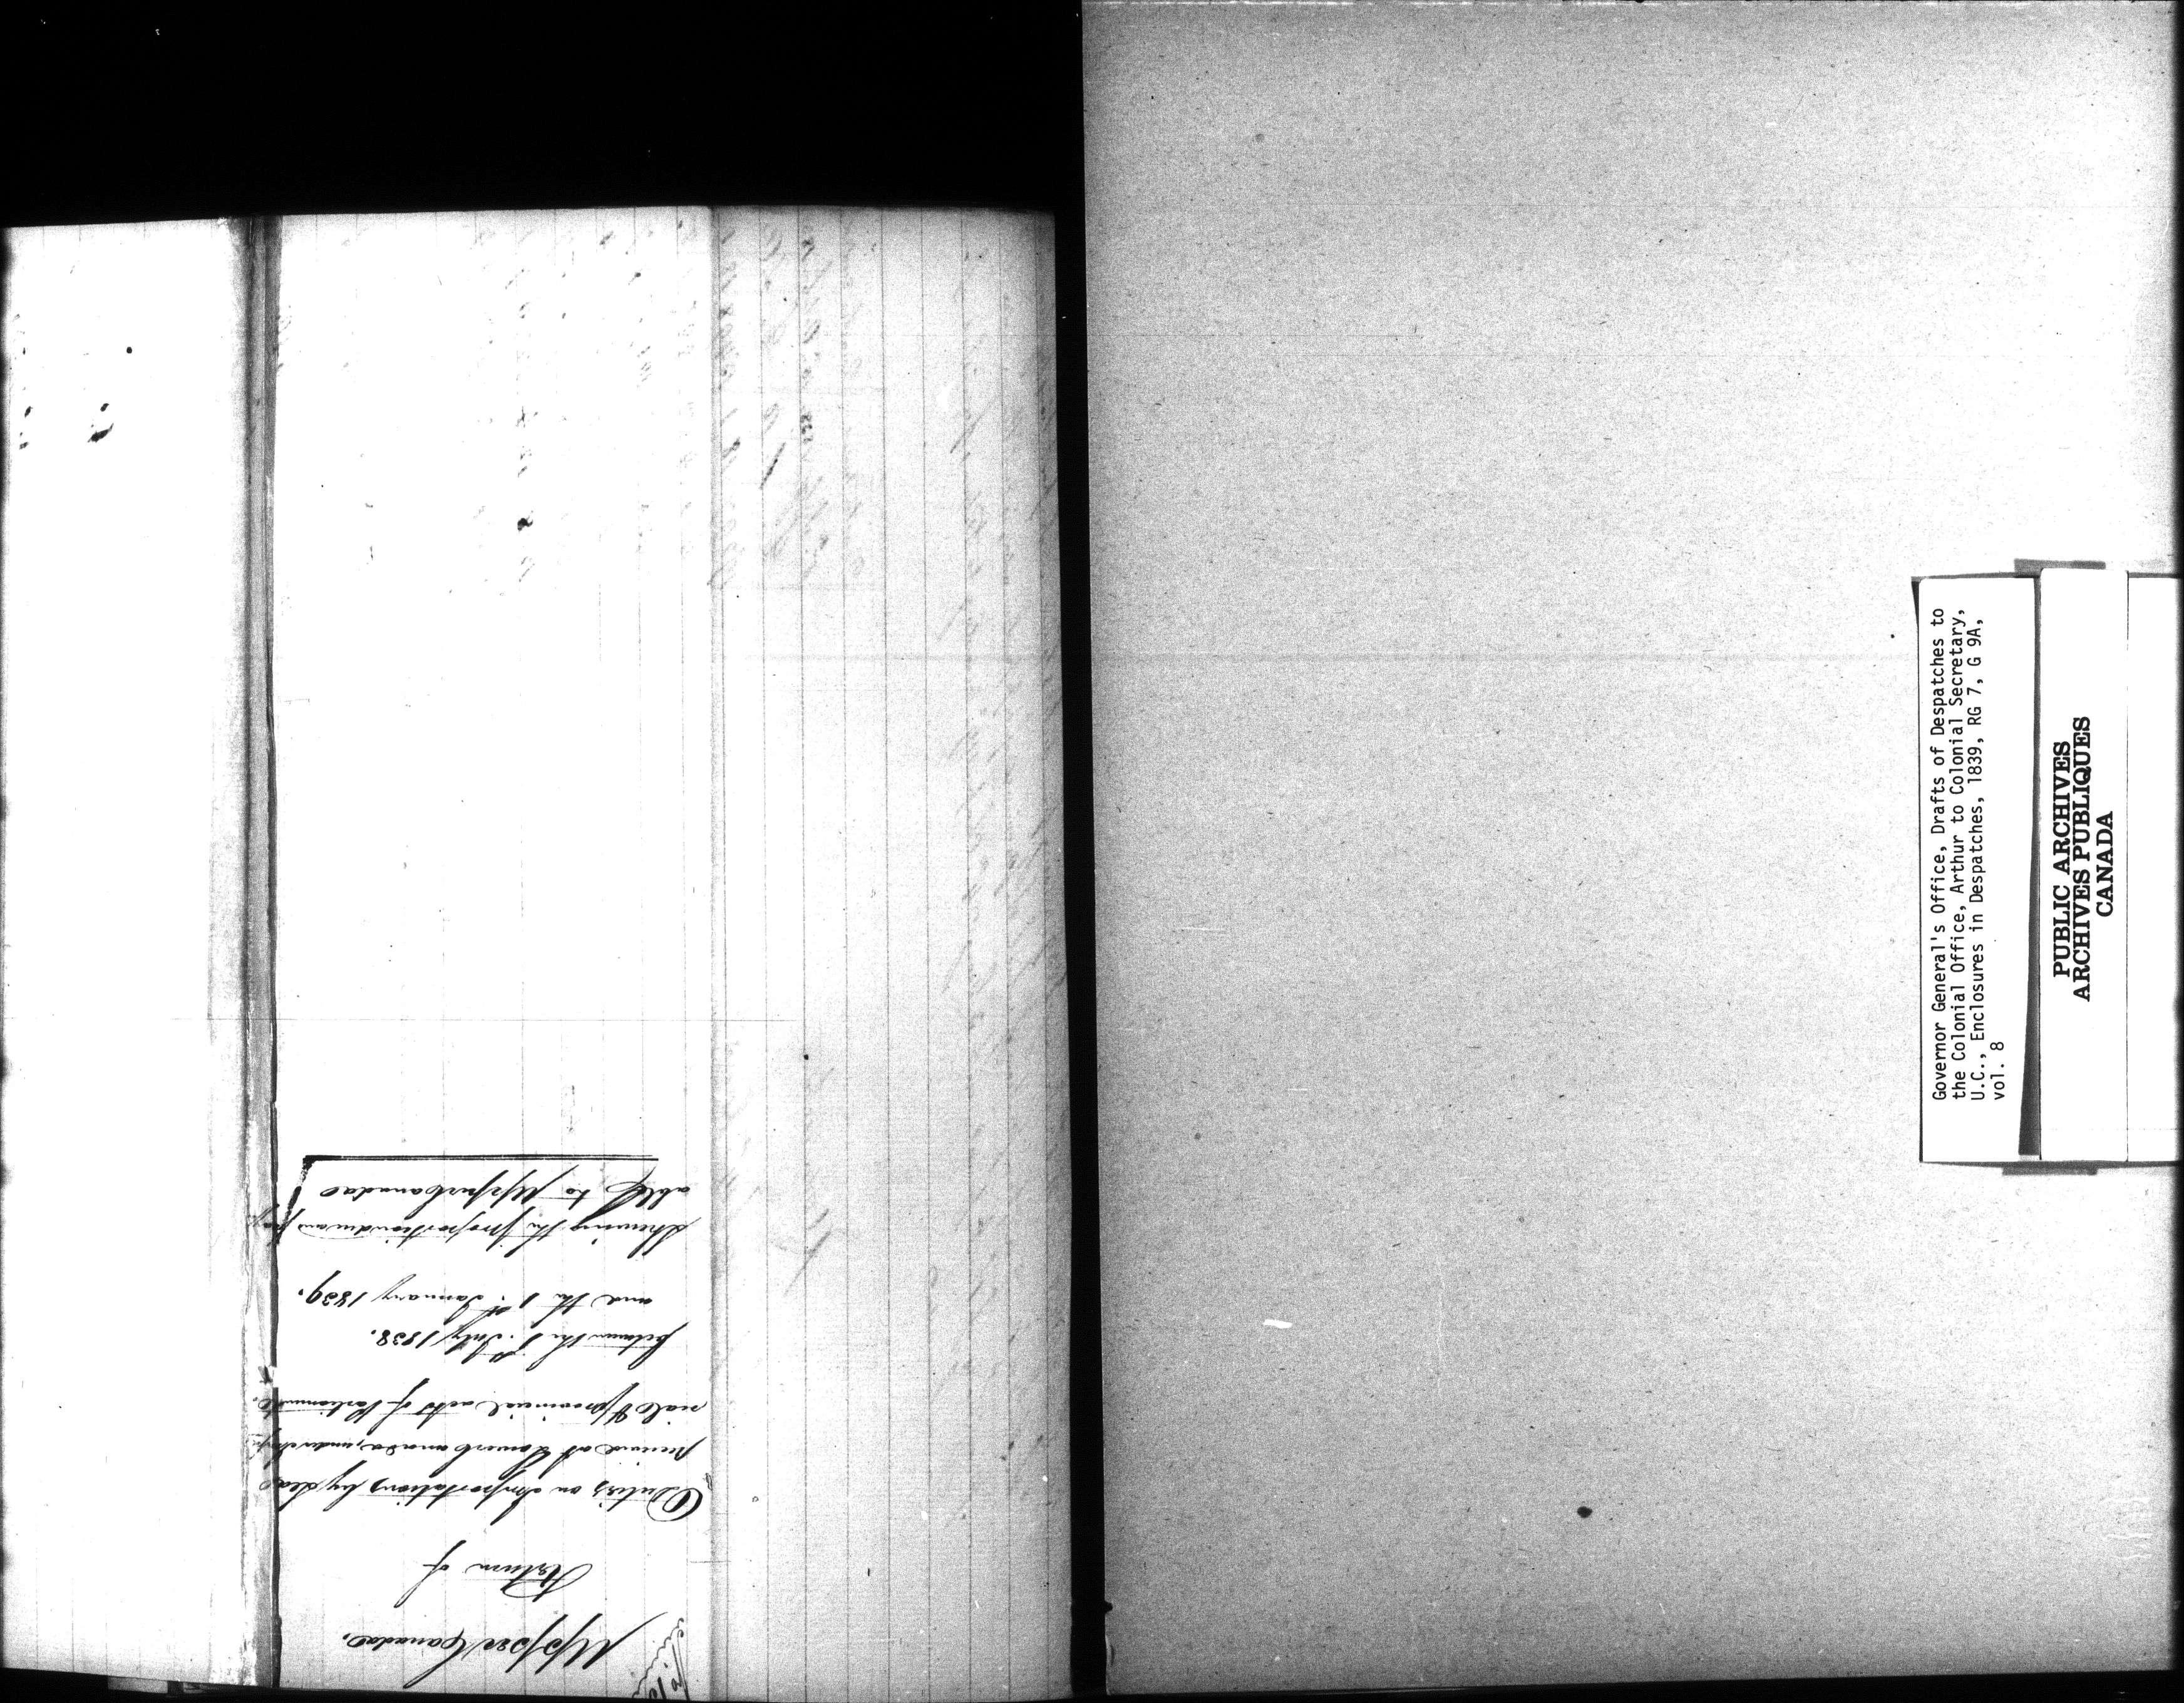 Upper Canada.
Return of
Duties on Importations by Sea
received at Lower Canada, under
rial & provincial acts of Parliament
between the 1st July 1838.
and the 1st January 1839.
Shewing the proportion
able to Upper Canada
Governor General's Office, Drafts of Despatches to
the Colonial Office, Arthur to Colonial Secretary,
U.C., Enclosures in Despatches, 1839, RG 7, G 9A,
vol. 8
PUBLIC ARCHIVES
ARCHIVES PUBLIQUES
CANADA